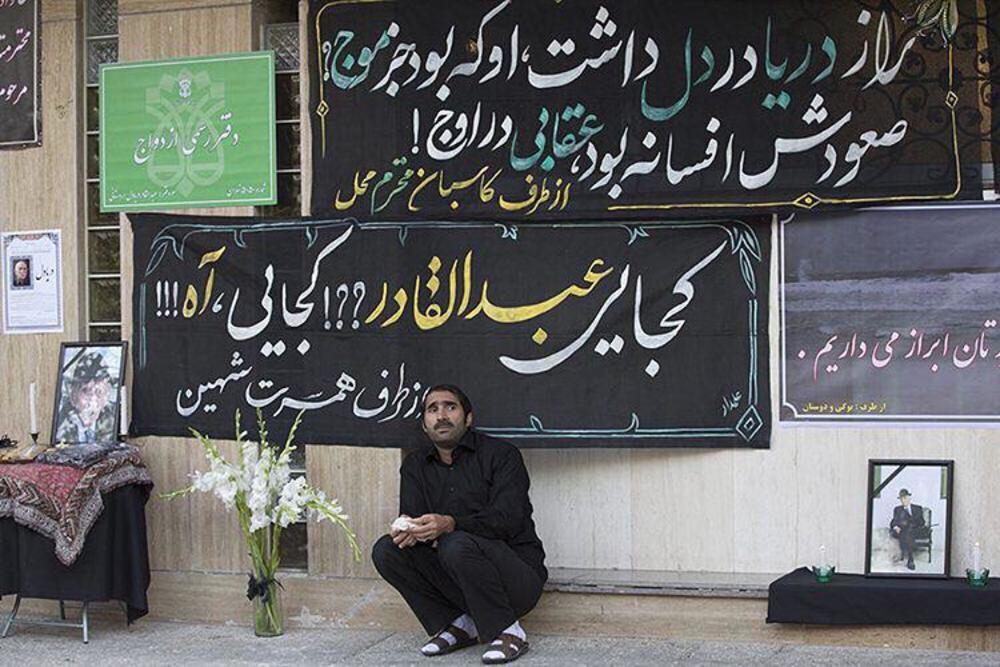 راز دریا در دل داشت، او که بود جز موج؟
صعودش افسانه بود، عقابی در اوج!
از طرف کاسبان محترم محل
دفتر رسمی ازدواج
کجایی عبدالقادر؟؟؟! کجایی، آه!!!
از طرف همسرت شهین
تان ابراز می داریم.
از طرف: بوکی و دوستان
دریادل
محترم
مرحوم